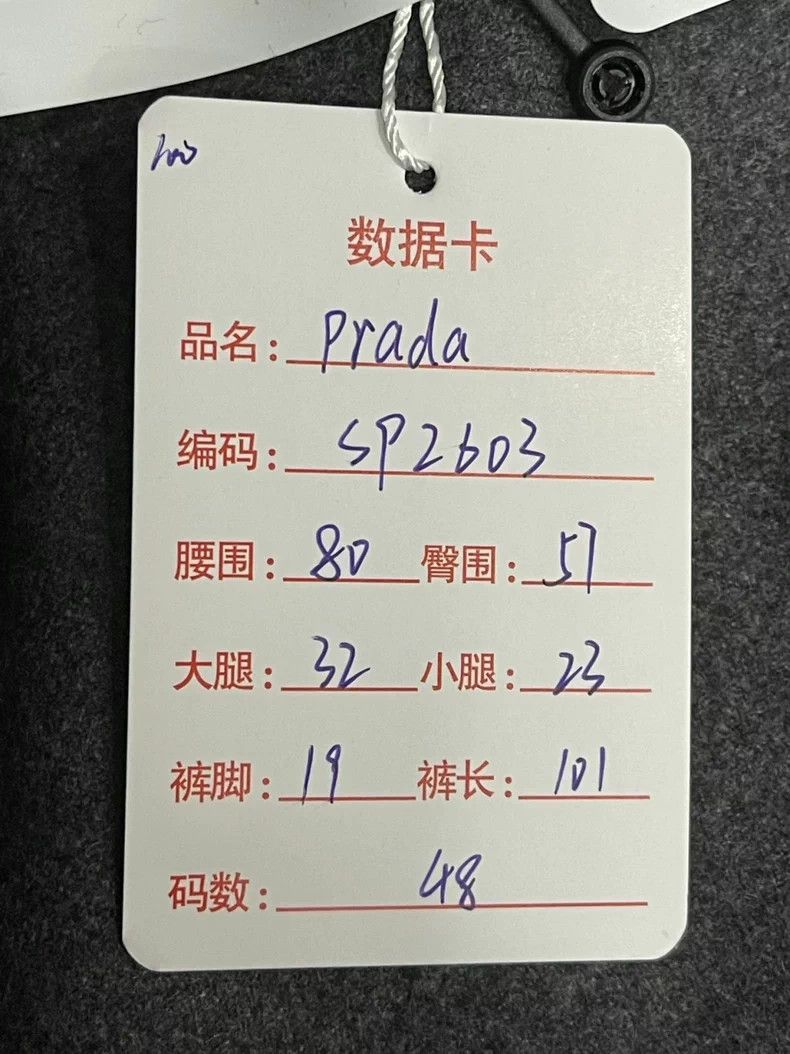 数据卡
品名: Prada
编码: SP2603
腰围: 80 臀围: 57
大腿: 32 小腿: 23
裤脚: 19 裤长: 101
码数: 48